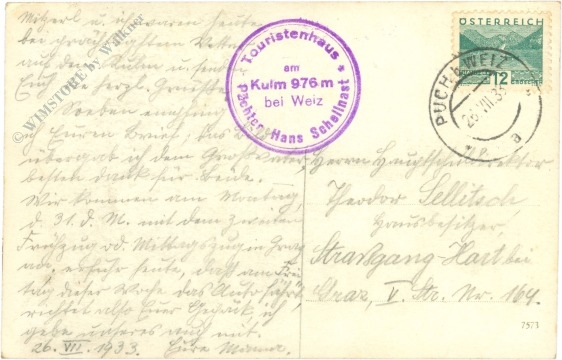 Mitzerl u. ich waren heute
bei prächtigstem
auf dem Kulm u. senden
Euch herzl. Grüße
Soeben empfing
ich Euren Brief; das
übergab ich dem Großvater,
besten Dank für beide.
Wir kommen am Montag,
d. 31. d. M. mit dem zweiten
Frühzug od. Mittagszug in Graz
an; erfuhr heute, daß am Frei
tag dieser Woche das Auto fährt,
richtet also Euer Gepäck, ich
gebe unseres auch mit.
26. VII. 1933. Eure Mama.
© WIMSTORE by Walkner
Touristenhaus
am
Kulm 976 m
bei Weiz
Pächter Hans Schellnast
ÖSTERREICH
12
PUCH b. WEIZ
Herrn Hauptschuldirektor
Theodor Sellitsch
Hausbesitzer,
Straßgang-Hart bei
Graz, V. Str. Nr. 164.
7573